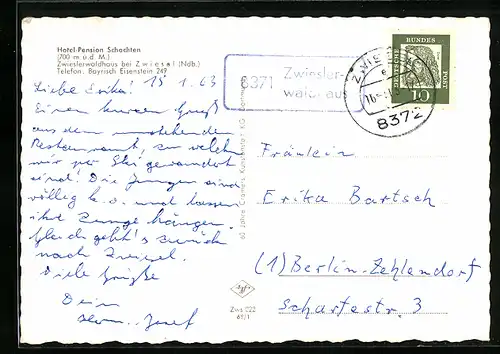 Hotel-Pension Schachten
(700 m ü.d. M.)
Zwieslerwaldhaus bei Zwiesel (Ndb.)
Telefon: Bayrisch Eisenstein 249
Liebe Erika! 15.1.63
Einen kurzen Gruß
aus dem umstehenden
Restaurant, zu welchem
wir per Ski gewandert
sind! Die Jungen sind
völlig k.o. und lassen
ihre Zunge hängen.
Gleich geht's zurück
nach Zwiesel.
Viele Grüße
Dein
Josef
8371 Zwiesler-
waldhaus
ZWIESEL
8372
DEUTSCHE BUNDESPOST
10
Fräulein
Erika Bartsch
(1) Berlin-Zehlendorf
Schartestr. 3
60 Jahre Clemens Kunstanstalt KG
Agfa
Zws 022
62/1